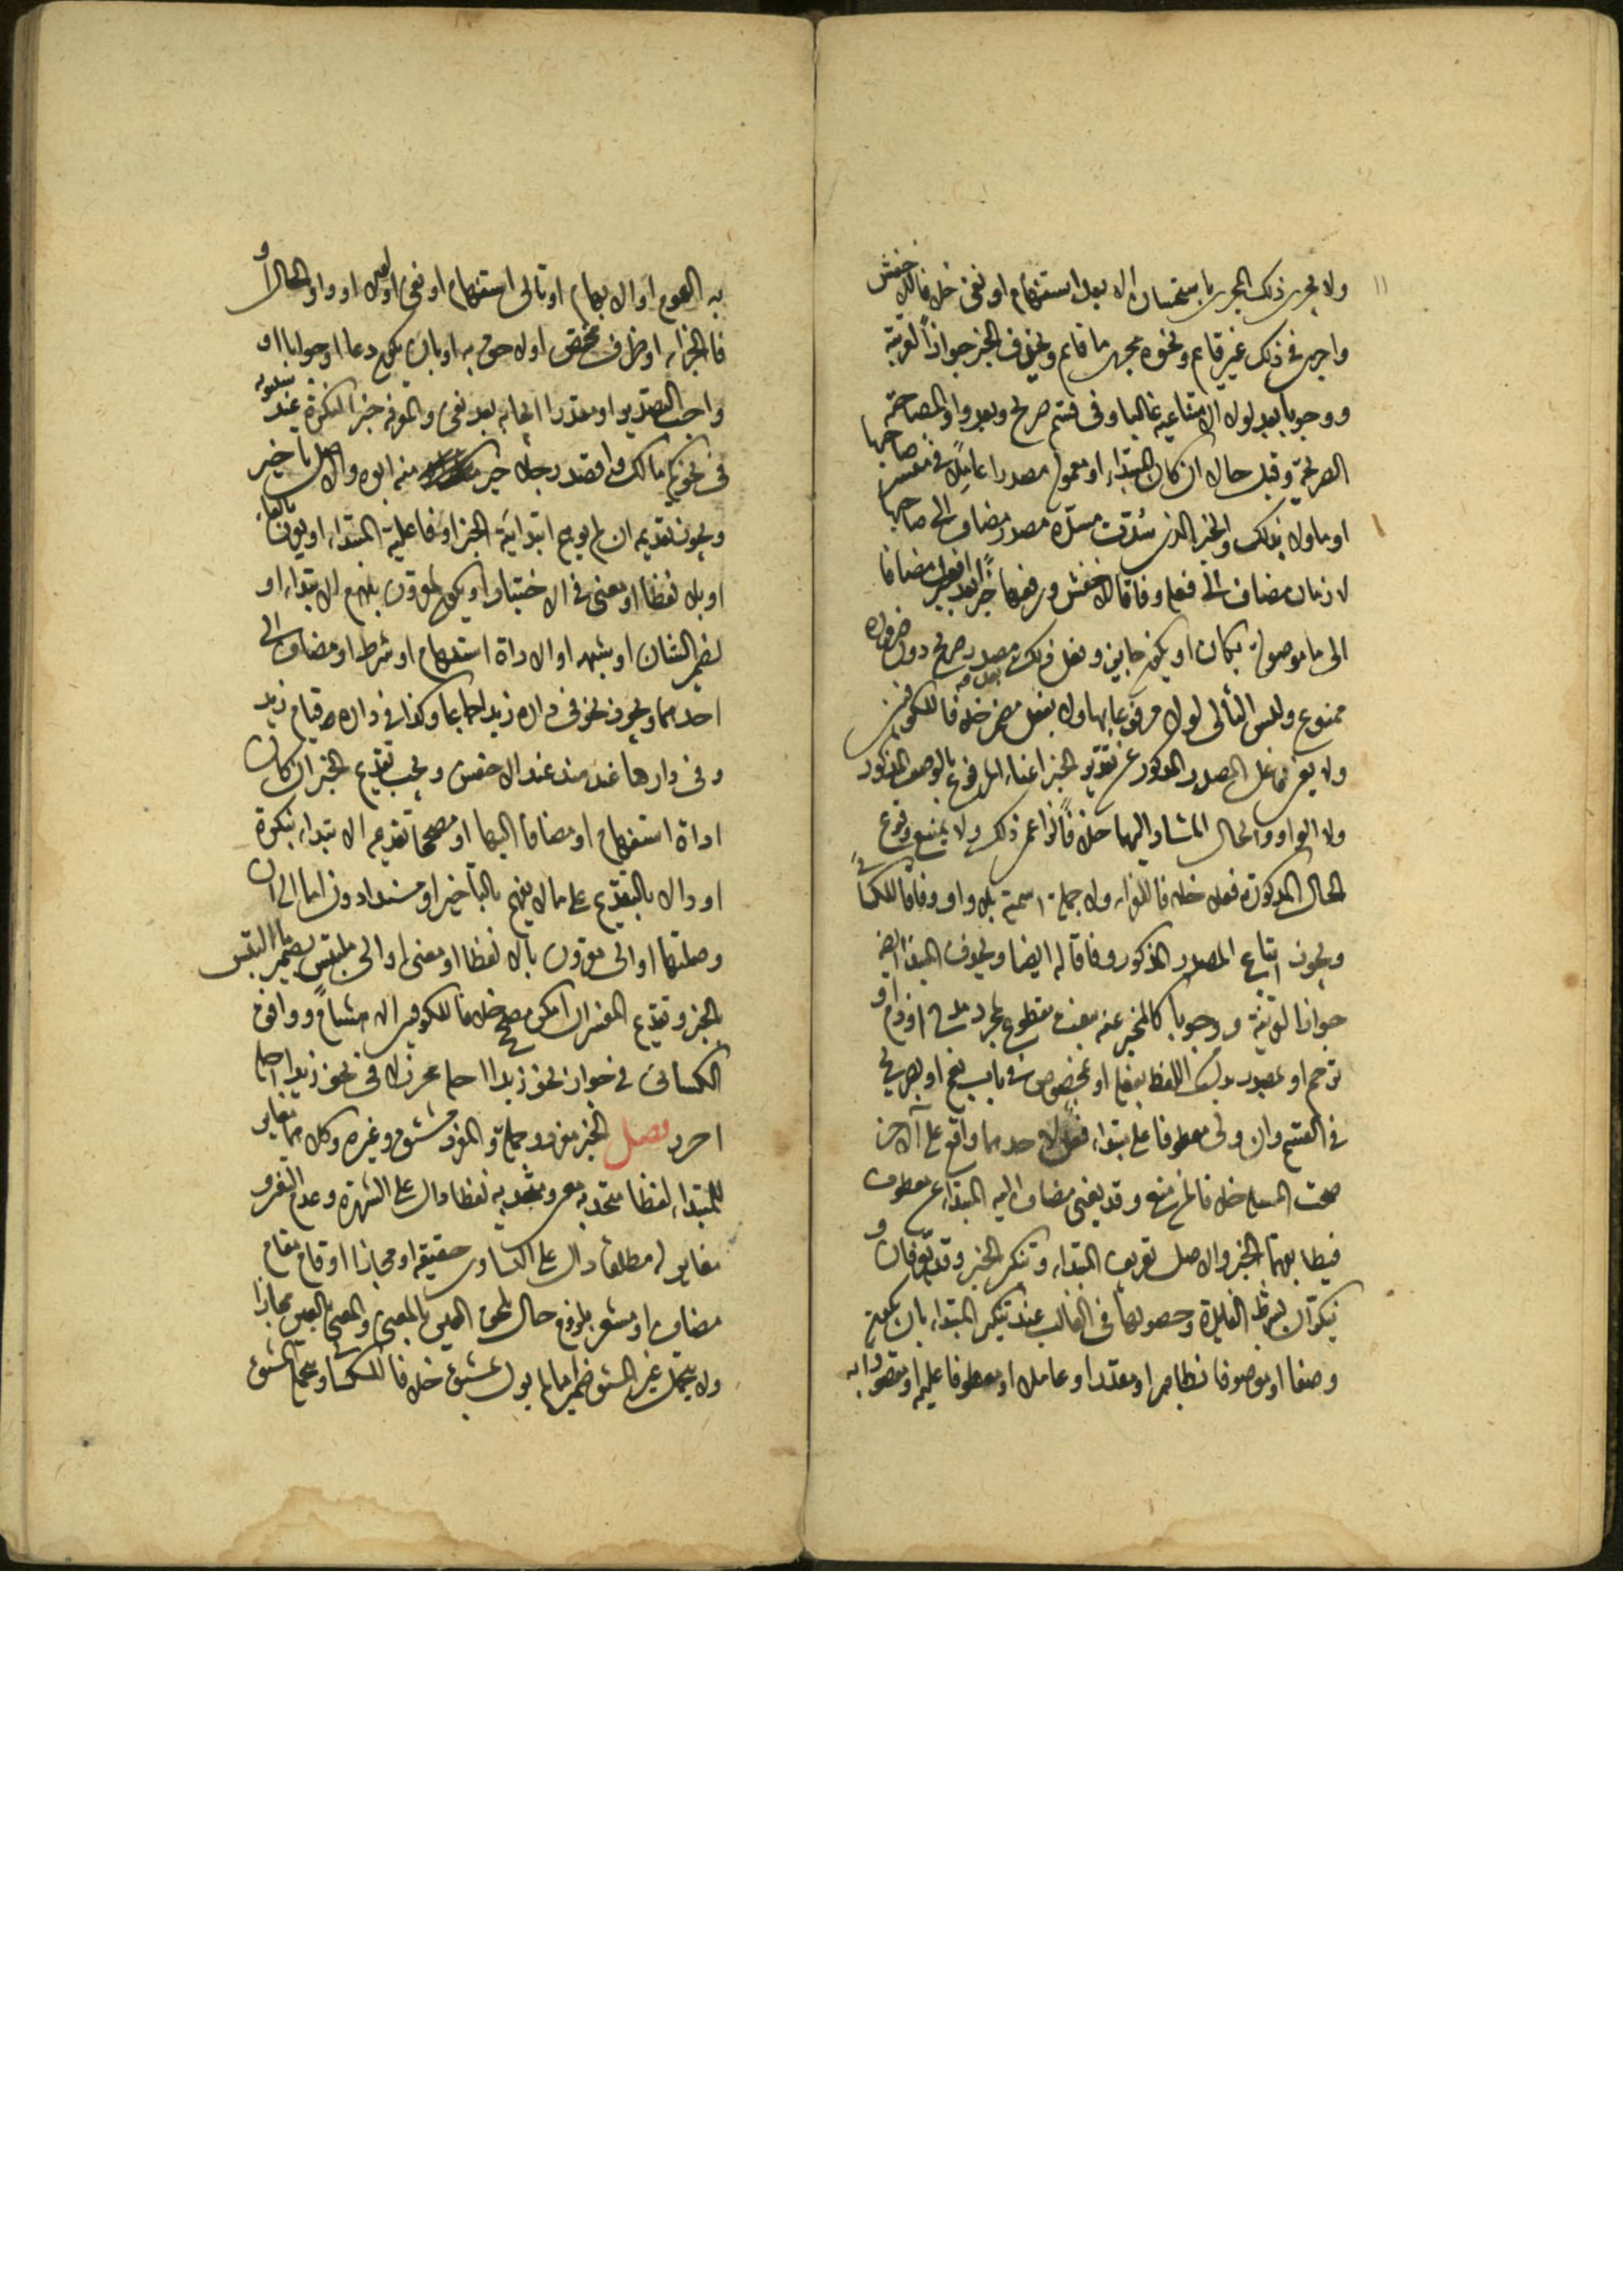 ١١
ولا يجرى ذلك المجرى باستحسان الا بعد استفهام او نفى خلافا للاخفش
واجرى فى ذلك غير قايم ونحوه مجرى ما قايم ويحذف الخبر جوازا لقرينة
ووجوبا بعد لولا الامتناعيه غالبا وفى قسم صريح وبعد واو المصاحبة
الصريحة وقبل حال ان كان المبتداء او معموله مصدرا عاملا فى مفسر صاحبها
او ماولا بذلك والخبر الذى سدت مسده مصدر مضاف الى صاحبها
لا زمان مضاف الى فعله وفاقا للاخفش ورفعها خبرا بعد افعل مضافا
الى ما موصولة بكان او يكون جايز وفعل ذلك بعد مصدر صريح دون ضرورة
ممنوع وليس التالى لولا مرفوعا بها ولا بفعل مضمر خلافا للكوفيين
ولا يغنى فاعل المصدر المذكور عن تقدير الخبر اغناء المرفوع بالوصف المذكور
ولا الواو والحال المشار اليهما خلافا لزاعمى ذلك ولا يمتنع وقوع
الحال المذكورة فعلا خلافا للفراء ولا جملة اسمية بلا واو وفاقا للكسائى
ويجوز اتباع المصدر المذكور وفاقا له ايضا ويحذف المبتدا ايضا
جوازا لقرينة ووجوبا كالمخبر عنه بنعت مقطوع لمجرد مدح او ذم او
ترحم او بمصدر بدل من اللفظ بفعله او بمخصوص فى باب نعم او بصريح
فى القسم وان ولى معطوفا على مبتداء فعل لاحدهما واقع على الاخر
صحت المسئلة خلافا لمن منع وقد يغنى مضاف اليه المبتداء عن معطوف
فيطابقهما الخبر والاصل تعريف المبتداء وتنكير الخبر وقد يعرفان و
ينكران بشرط الفايدة وحصولها فى الغالب عند تنكير المبتداء بان يكون
وصفا او موصوفا بظاهر او مقدر او عاملا او معطوفا عليه او مقصودا به
به العموم او الابهام او تالى استفهام او نفى او لولا او واو الحال او
فا الجزاء او ظرف مختص او لاحق به او بان يكون دعا او جوابا او
واجب التصدير او مقدرا ايجابه بعد نفى والمعرفة خبر النكرة عند سيبويه
فى نحو كم مالك واقصد رجلا خير منه ابوه والاصل تاخير
ويجوز تقديمه ان لم يوهم ابتدائية الخبر او فاعلية المبتداء او يقرن بالفاء
او بالا لفظا او معنى فى الاختيار او يكن لمقرون بلام الابتداء او
لضمير الشان او شبهه او لاداة استفهام او شرط او مضاف الى
احدهما ويجوز نحو فى داره زيد اجماعا وكذا فى داره قيام زيد
وفى دارها عبد هند عند الاخفش ويجب تقديم الخبر ان كان
اداة استفهام او مضافا اليها او مصححا تقديمه الابتداء بنكرة
او دالا بالتقديم على ما لا يفهم بالتاخير او مسندا دون اما الى ان
وصلتها او الى مقرون بالا لفظا او معنى او الى ملتبس بضمير ما التبس
بالخبر وتقديم المفسر ان امكن مصحح خلافا للكوفيين الا هشاما ووافق
الكسائى فى جواز نحو زيدا اجله محرز لا فى نحو زيدا اجله
احرز فصل الخبر مفرد وجملة والمفرد مشتق وغيره وكلاهما مغاير
للمبتداء لفظا متحد به معنى ومتحد به لفظا دال على الشهرة وعدم التغير و
مغاير له مطلقا دال على التساوى حقيقة او مجازا او قام مقام
مضاف او مشعر بلزوم حال تلحق العين بالمعنى والمعنى بالعين مجازا
ولا يتحمل غير المشتق ضميرا ما لم يول بمشتق خلافا للكسائى ويتحمله المشتق